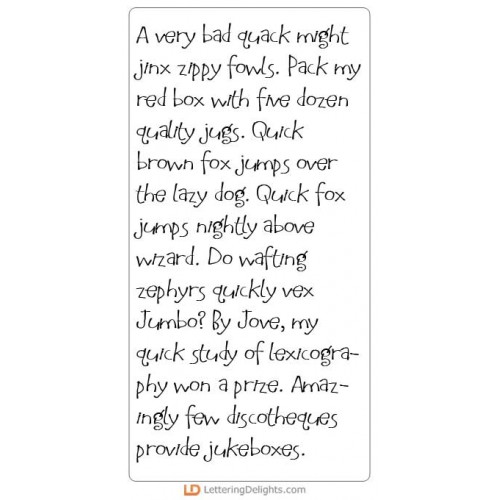 A very bad quack might
jinx zippy fowls. Pack my
red box with five dozen
quality jugs. Quick
brown fox jumps over
the lazy dog. Quick fox
jumps nightly above
wizard. Do wafting
zephyrs quickly vex
Jumbo? By Jove, my
quick study of lexicogra-
phy won a prize. Amaz-
ingly few discotheques
provide jukeboxes.
LD LetteringDelights.com